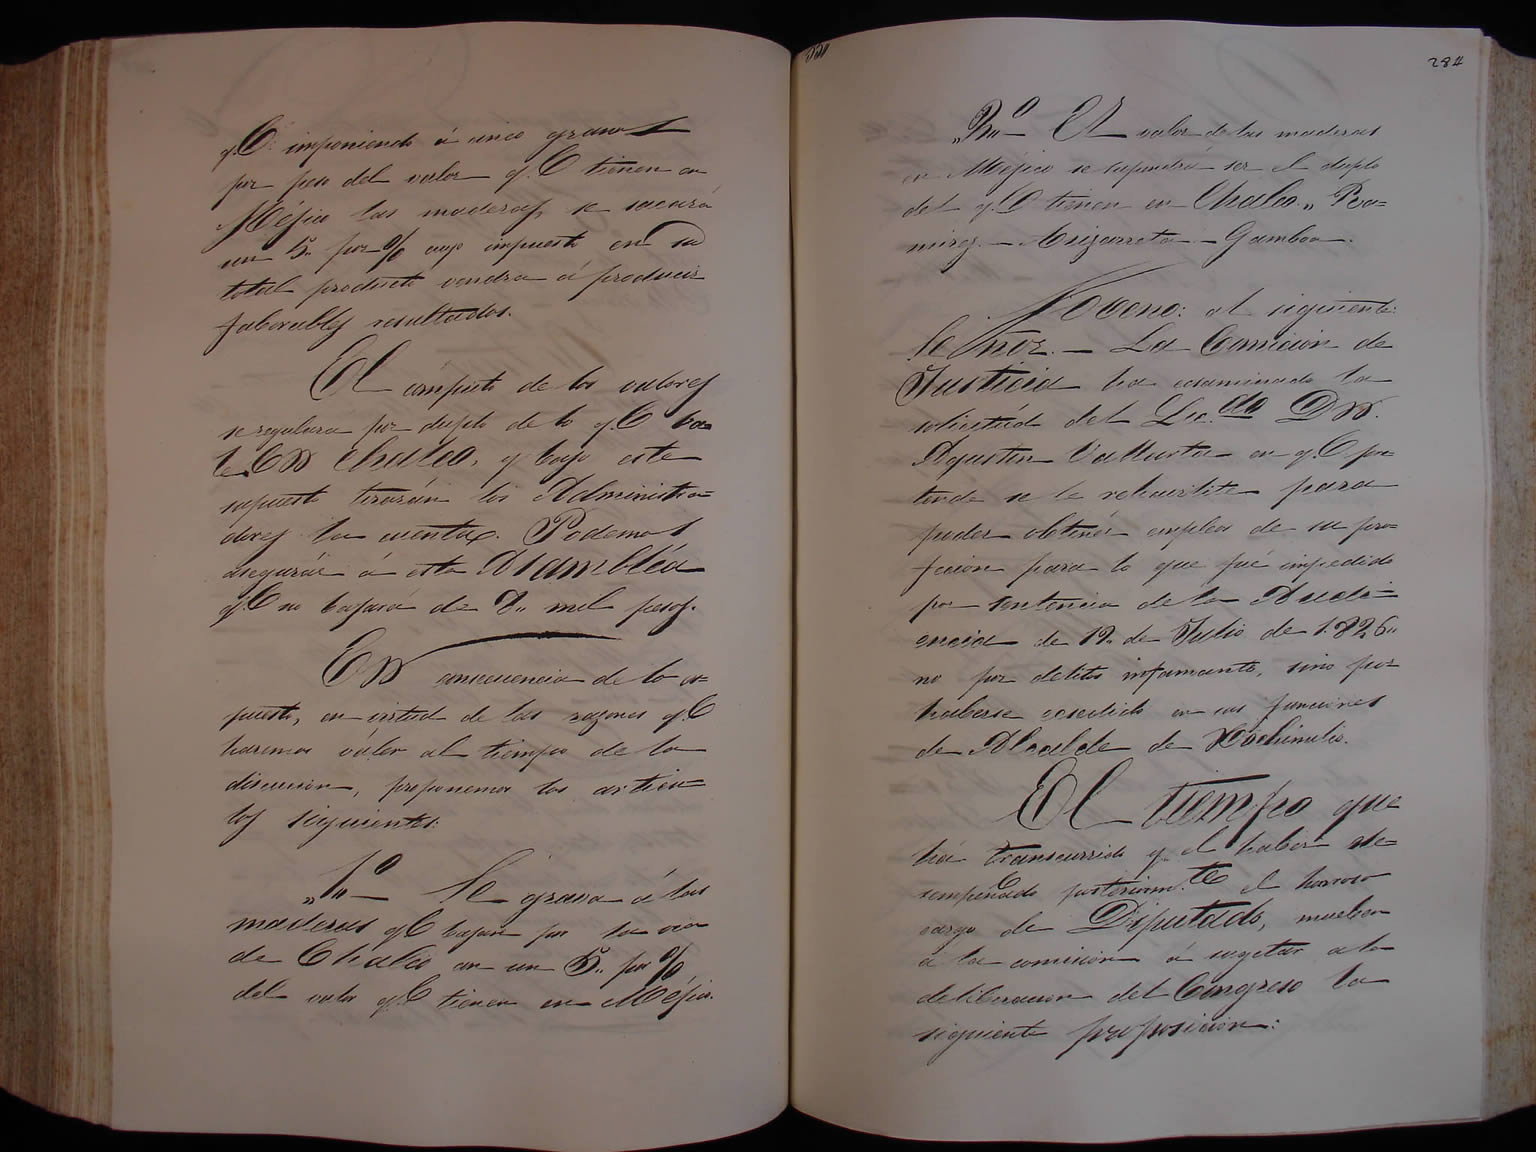 q.e imponiendo á cinco granos
por peso del valor q.e tienen en
Méjico las maderas, se sacará
un 5,, por % cuyo impuesto en su
total producto vendra á producir
faborables resultados.
El cómputo de los valores
se regulara por duplo de lo q.e ba=
le en Chalco, y bajo este
supuesto tirarán los Administra=
dores la cuenta. Podemos
asegurár á esta Asambléa
q.e no bajará de 8,, mil pesos.
En consecuencia de lo es=
puesto, en virtud de las razones q.e
haremos váler al tiempo de la
discucion, proponemos los artícu=
los siguientes:
,,1,,º — Se grava á las
maderas q.e bajan por la via
de Chalco en un 5,, por %
del valor q.e tienen en Méjico.
284
,,2,,º — El valor de las maderas
en Méjico se supondrá ser el duplo
del q.e tienen en Chalco,, Ra=
mirez — Azizorreta — Gamboa.
Noveno: al siguiente:
Señor. — La Comicion de
Justicia ha ecsaminado la
solicitúd del Lic.do Dn.
Agustin Vallarta en q.e pre=
tende se le rehavilite para
poder obtenér empleo de su pro=
fecion para lo que fué impedido
por sentencia de la Audi=
encia de 19,, de Julio de 1.826,,
no por delito infamante, sino por
haberse ecsedido en sus funciones
de Alcalde de Xochimilco.
El tiempo que
há transcurrido y el haber de=
sempeñado posteriorm.te el honroso
cargo de Diputado, mueben
á la comicion á sugetar a la
deliberacion del Congreso la
siguiente proposicion: